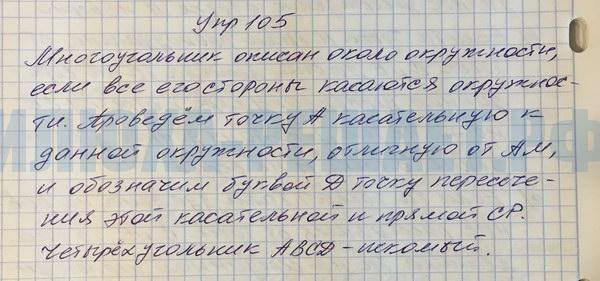 Упр 105
Многоугольник описан около окружности,
если все его стороны касаются окружнос-
ти. Проведём точку А касательную к
данной окружности, отличную от АМ,
и обозначим буквой D точку пересече-
ния этой касательной и прямой СР.
Четырёхугольник ABCD - искомый.